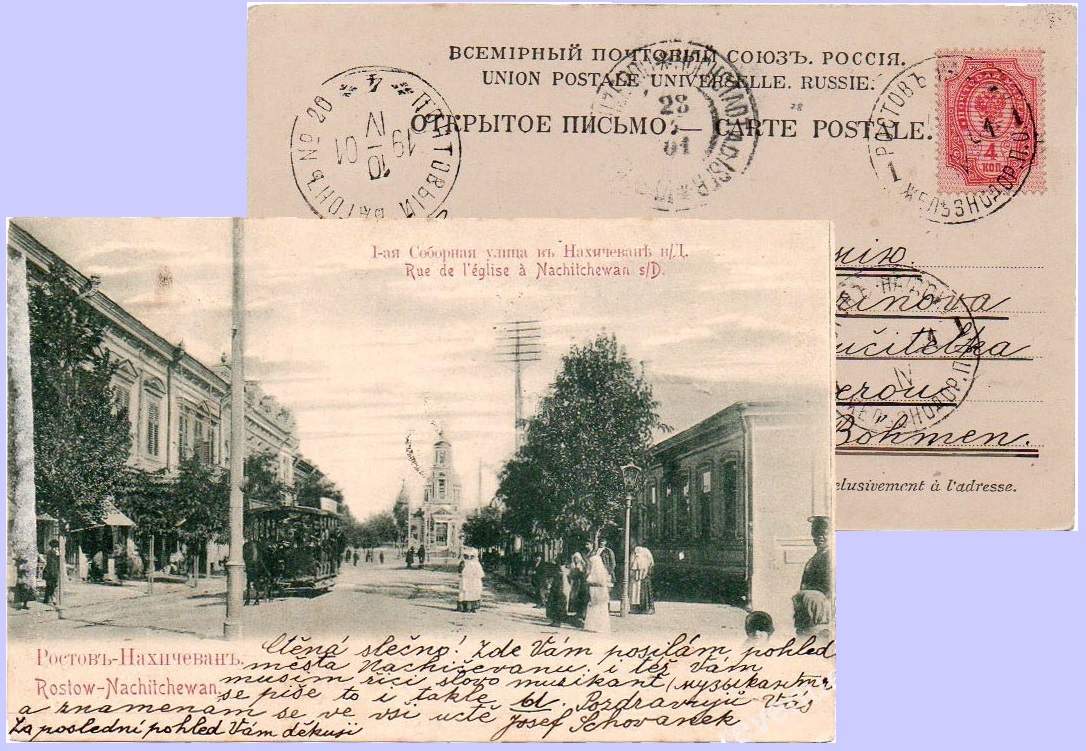 ВСЕМІРНЫЙ ПОЧТОВЫЙ СОЮЗЪ. РОССІЯ.
UNION POSTALE UNIVERSELLE. RUSSIE.
ОТКРЫТОЕ ПИСЬМО. — CARTE POSTALE.
ПОЧТОВЫЙ ВАГОНЪ № 20
10 IV 1901
23
01
РОСТОВЪ
1 ЖЕЛѢЗНОДОР. П.О. 1
4 КОП
učitelka
Böhmen.
clusivement à l'adresse.
1-ая Соборная улица къ Нахичеванѣ н/Д.
Rue de l'église à Nachitchewan s/D.
Ростовъ-Нахичевань.
Rostow-Nachitchewan.
Ctěná slečno! Zde Vám posílám pohled
města Nachičevanu. i též Vám
musím říci slovo muzikant (музыкантъ
se píše to i takle ы. Pozdravujů Vás
a znamenám se ve vší uctě Josef Schovanek
Za poslední pohled Vám děkuji